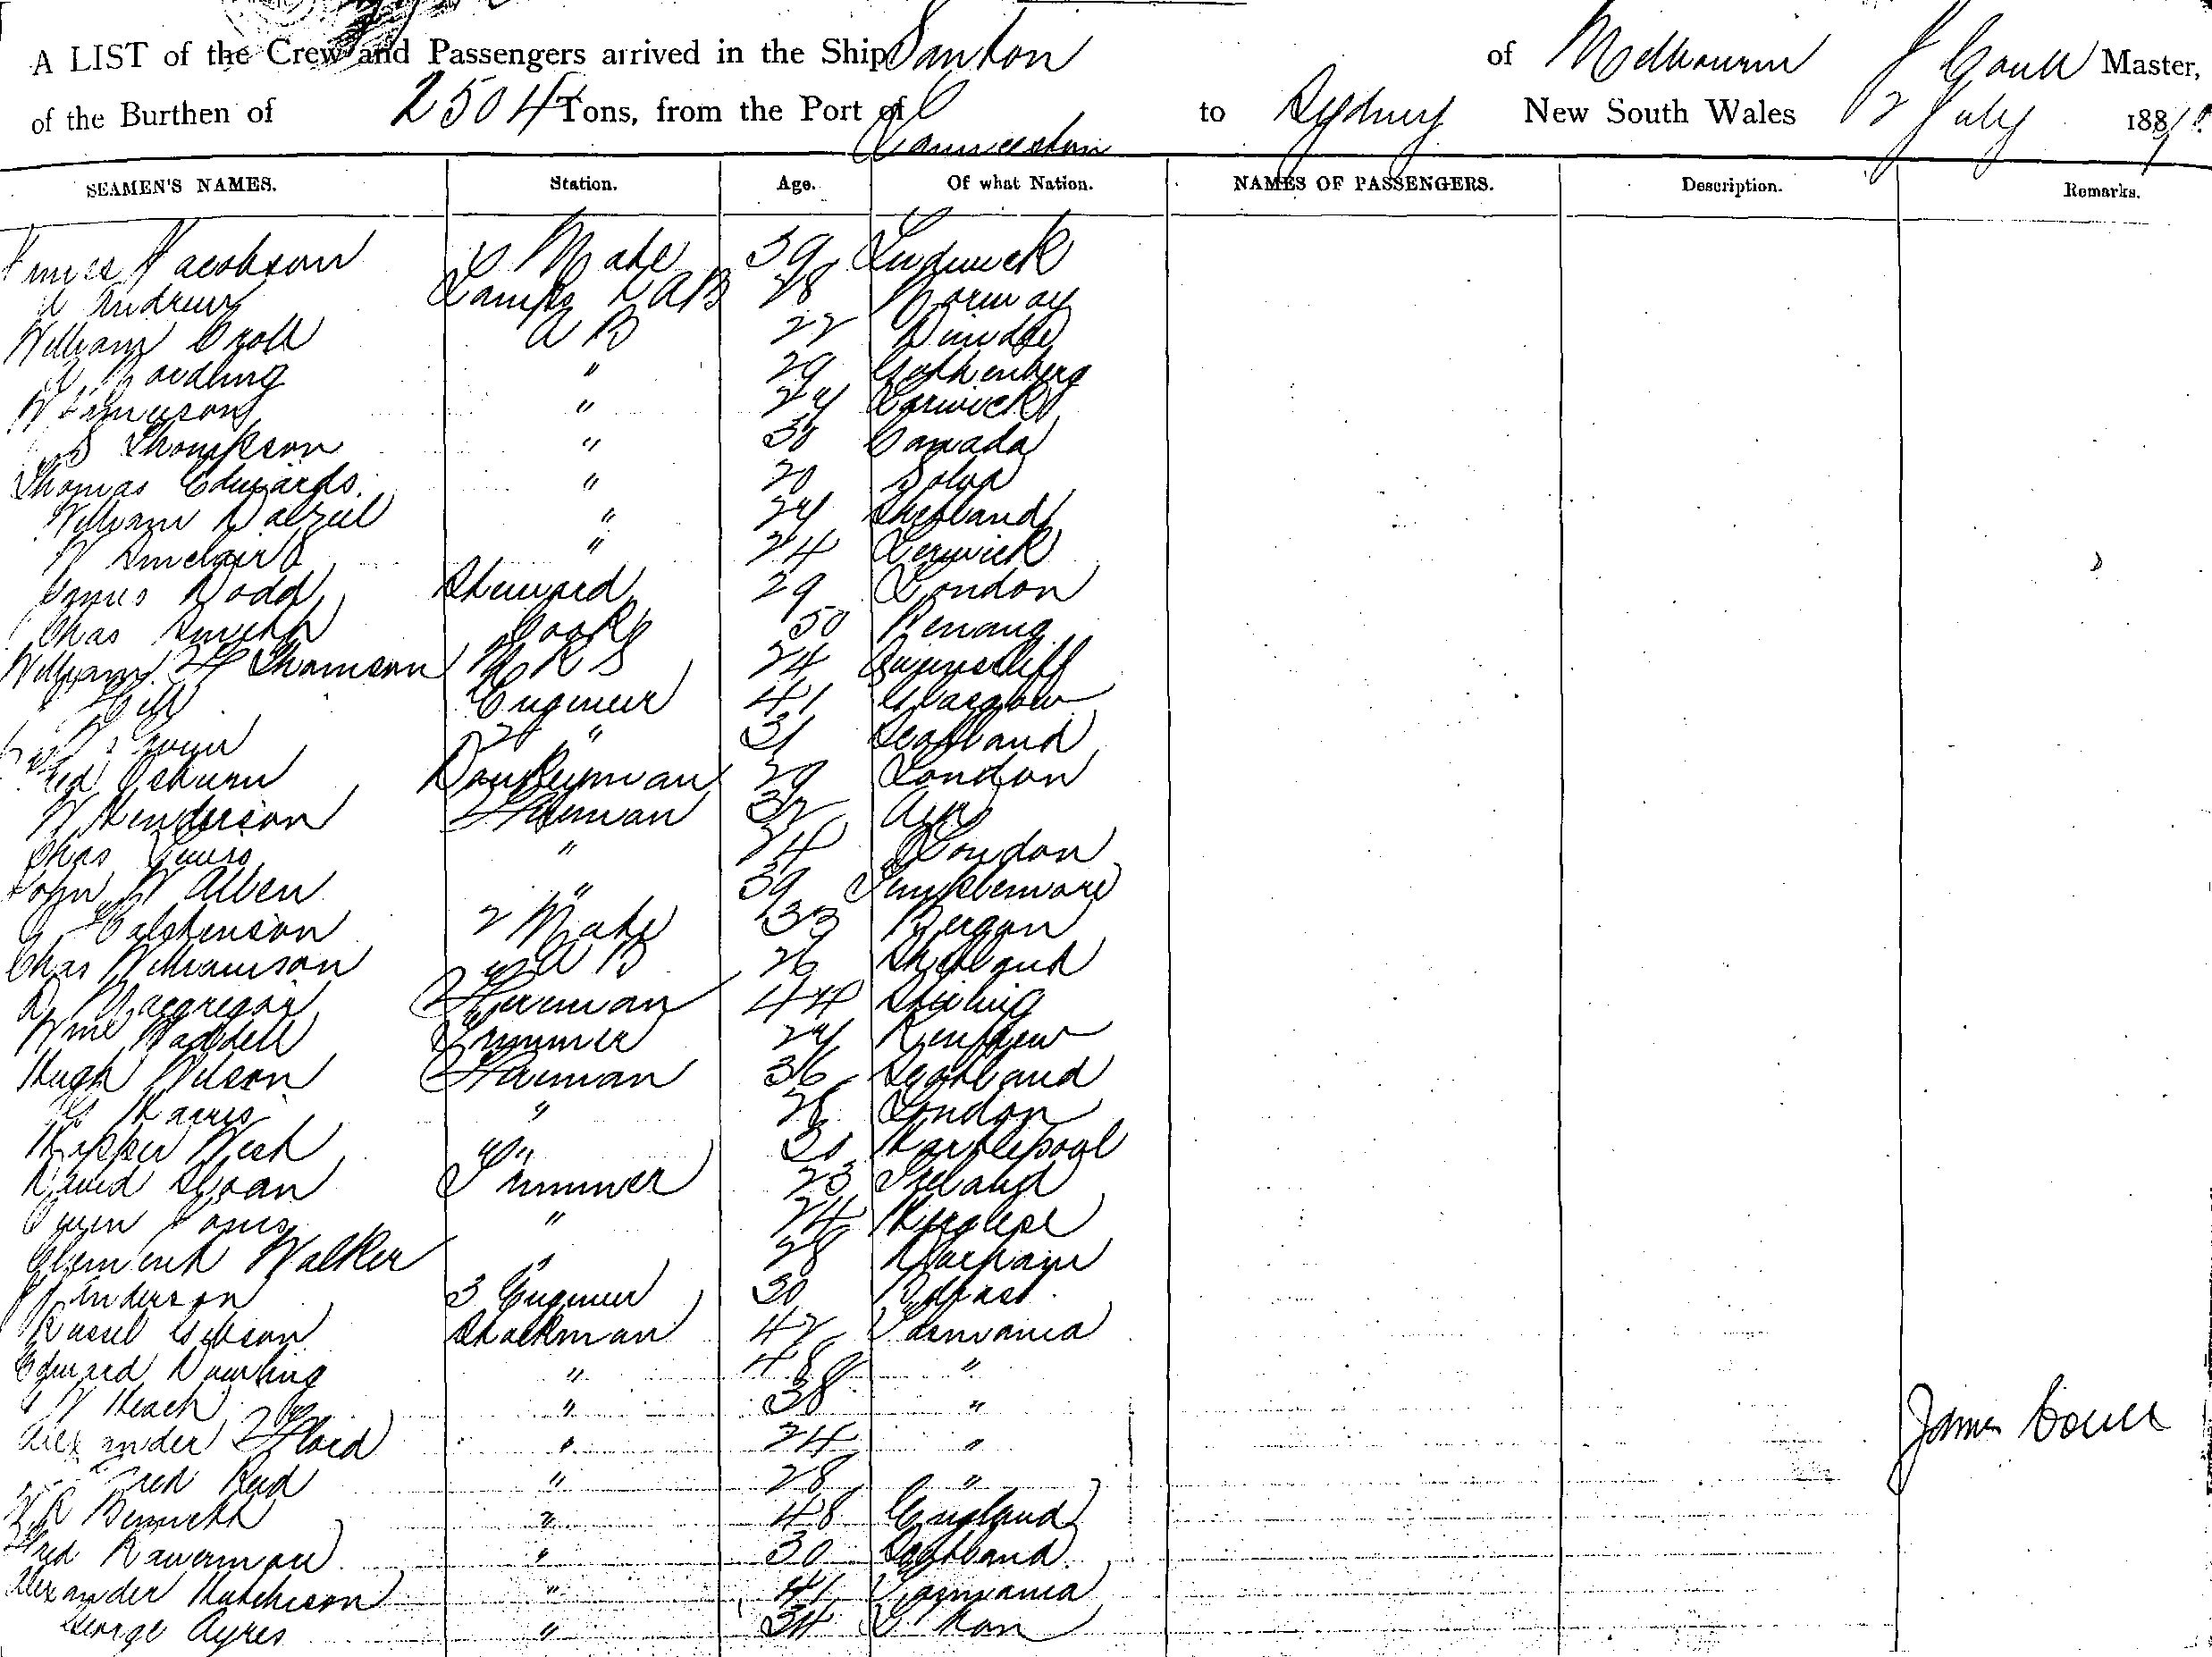 A LIST of the Crew and Passengers arrived in the Ship Santon of Melbourne J Master,
of the Burthen of 2504 Tons, from the Port of Launceston to Sydney New South Wales 2 July 188
SEAMEN'S NAMES. Station. Age. Of what Nation. NAMES OF PASSENGERS. Description. Remarks.
James Jacobson Mate 39
A Andrews Lamps & AB 28 Norway
William Croll A B 22 Dundee
A Nordling " 29 Gothenberg
W Jameson " 24 Lerwick
S Thompson " 30 Canada
Thomas Edwards " 20 Solva
William Dalziel " 24 Shetland
W Sinclair " 24 Lerwick
James Dodd Steward 29 London
Chas Smith Cook 50 Penang
William F Thomson M R S 24 Queenscliff
Hill Engineer 41 Glasgow
2 " 31 Scotland
Fred Osburn Donkeyman 29 London
W Henderson Fireman 32 Ayr
Chas " 24 London
John W Allen " 39
2 Mate 33 Bergen
Chas Williamson A B 26 Shetland
D Macgregor Fireman 44 Stirling
Wm Waddell Trimmer 24 Renfrew
Hugh Wilson Fireman 36 Scotland
G Harris " 28 London
West " 30 Hartlepool
David Sloan Trimmer 23 Ireland
Owen Jones " 24
Clement Walker " 28
J Anderson 3 Engineer 30 Belfast
Gibson Stockman 42 Tasmania
Edward Dowling " 48 "
W Heach " 38 "
Alexander Floid " 24 "
Fred Reid " 28 "
Bennett " 48 England
Fred " 30 Scotland
Alexander Hutchison " 41 Tasmania
George Ayres " 34
James